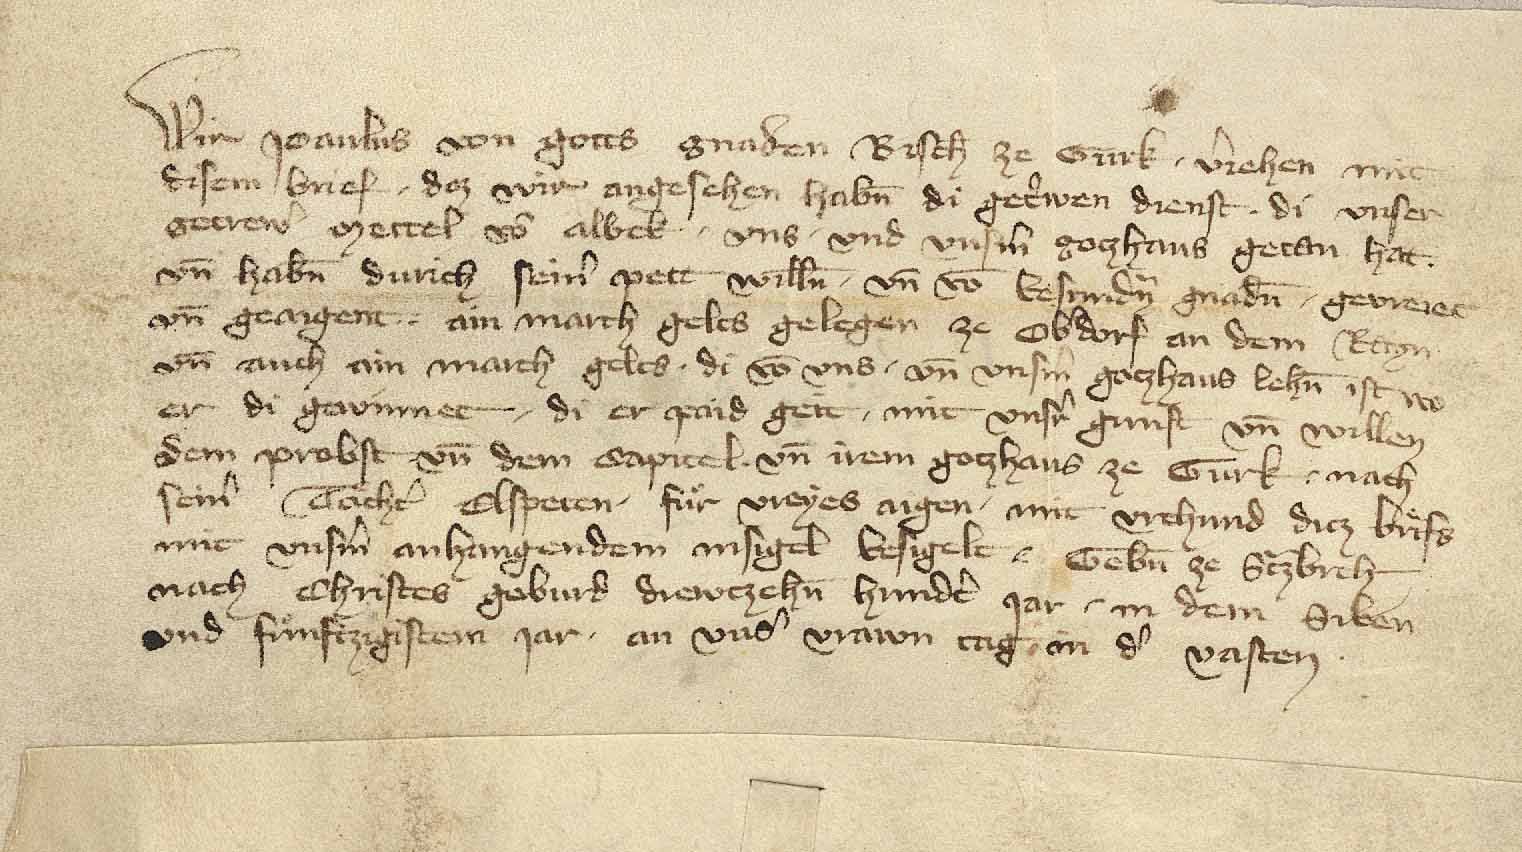 Wir Paulus von gotts gnaden Bisch ze Gurk · v̄iehen mit
disem brief · dez wir angesehen habn̄ di get̄wen dienst · di vnser
getrew̄ Mettel vō Albek · vns · vnd vnsm̄ gotzhaus getan hat ·
vn̄ habn̄ durich sein̄ pett willn̄ · vn̄ vō besundn̄ gnadn̄ · gevreiet
vn̄ geaigent · ain march gelts gelegen ze Obdorf an dem
vn̄ auch ain march gelts · di vō vns · vn̄ vnsm̄ gotzhaus lehn̄ ist wo
er di gewinnet · di er paid geit · mit vnsr̄ gunst vn̄ willen
dem probst vn̄ dem Capitel · vn̄ irem gotzhaus ze Gurk · nach
sein̄ Tocht̄ Elspeten · fuͤr vreyes aigen · mit vrchund ditz briefs
mit vnsm̄ anhangendem insigel besigelt · Gebn̄ ze
nach Christes geburd drewtzehn̄ hundt̄ Jar · in dem Siben
vnd fuͤnftzigistem Jar · an vns̄ vrawn tag · in d̄ vasten ·